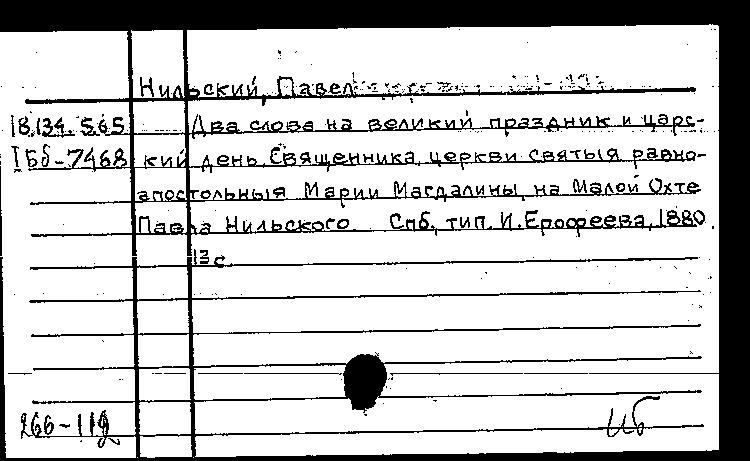 Нильский, Павел
18.134.565 Два слова на великий праздник и царс-
I Бб-7468 кий день. Священника церкви святыя равно-
апостольныя Марии Магдалины, на Малой Охте
Павла Нильского. Спб., тип. И. Ерофеева, 1880.
13 с.
266-112
иб